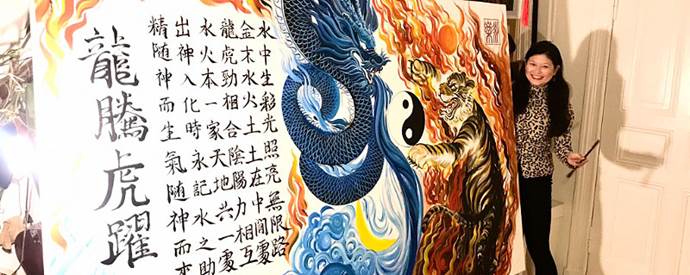 水中生彩光照亮無限路
金木水火土土在中間處
龍虎勁相合陰陽力相互
水火本一家天地六一處
出神入化時永記水之助
精隨神而生氣隨神而變
龍騰虎躍